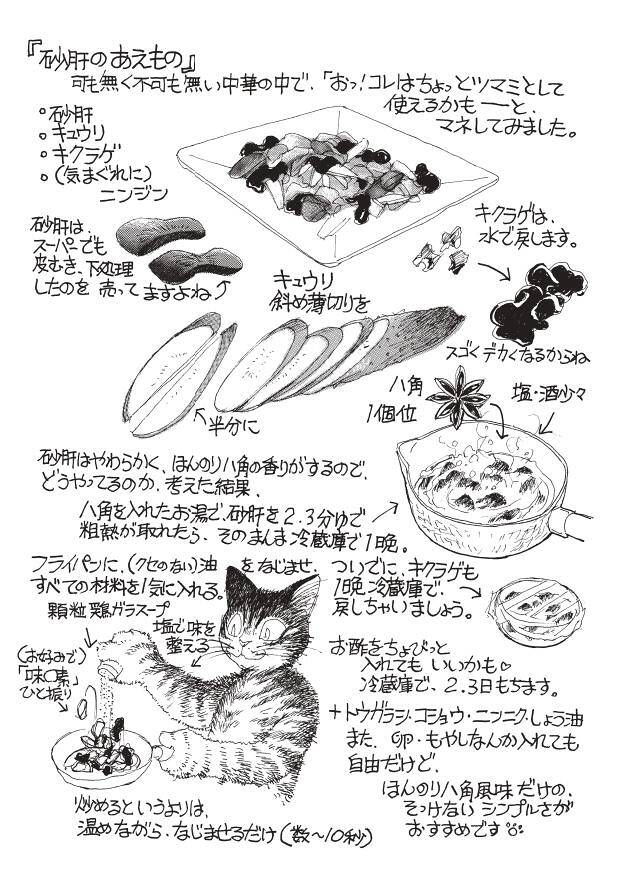 『砂肝のあえもの』
可も無く不可も無い中華の中で、「おっ!コレはちょっとツマミとして
使えるかも──と、
マネしてみました。
・砂肝
・キュウリ
・キクラゲ
・(気まぐれに)
ニンジン
砂肝は、
スーパーでも
皮むき、下処理
したのを 売ってますよね
キクラゲは、
水で戻します。
スゴくデカくなるからね
キュウリ
斜め薄切りを
半分に
八角
1個位
塩・酒少々
砂肝はやわらかく、ほんのり八角の香りがするので、
どうやってるのか、考えた結果、
八角を入れたお湯で、砂肝を2.3分ゆで
粗熱が取れたら、そのまんま冷蔵庫で1晩。
フライパンに、(クセのない)油 をなじませ、
すべての材料を1気に入れる。
顆粒鶏ガラスープ
塩で味を
整える
(お好みで)
「味〇素」
ひと振り
炒めるというよりは、
温めながら、なじませるだけ(数〜10秒)
ついでに、キクラゲも
1晩冷蔵庫で、
戻しちゃいましょう。
お酢をちょびっと
入れてもいいかも♡
冷蔵庫で、2.3日もちます。
+トウガラシ・コショウ・ニンニク・しょう油
また、卵・もやしなんか入れても
自由だけど、
ほんのり八角風味だけの、
そっけないシンプルさが
おすすめです